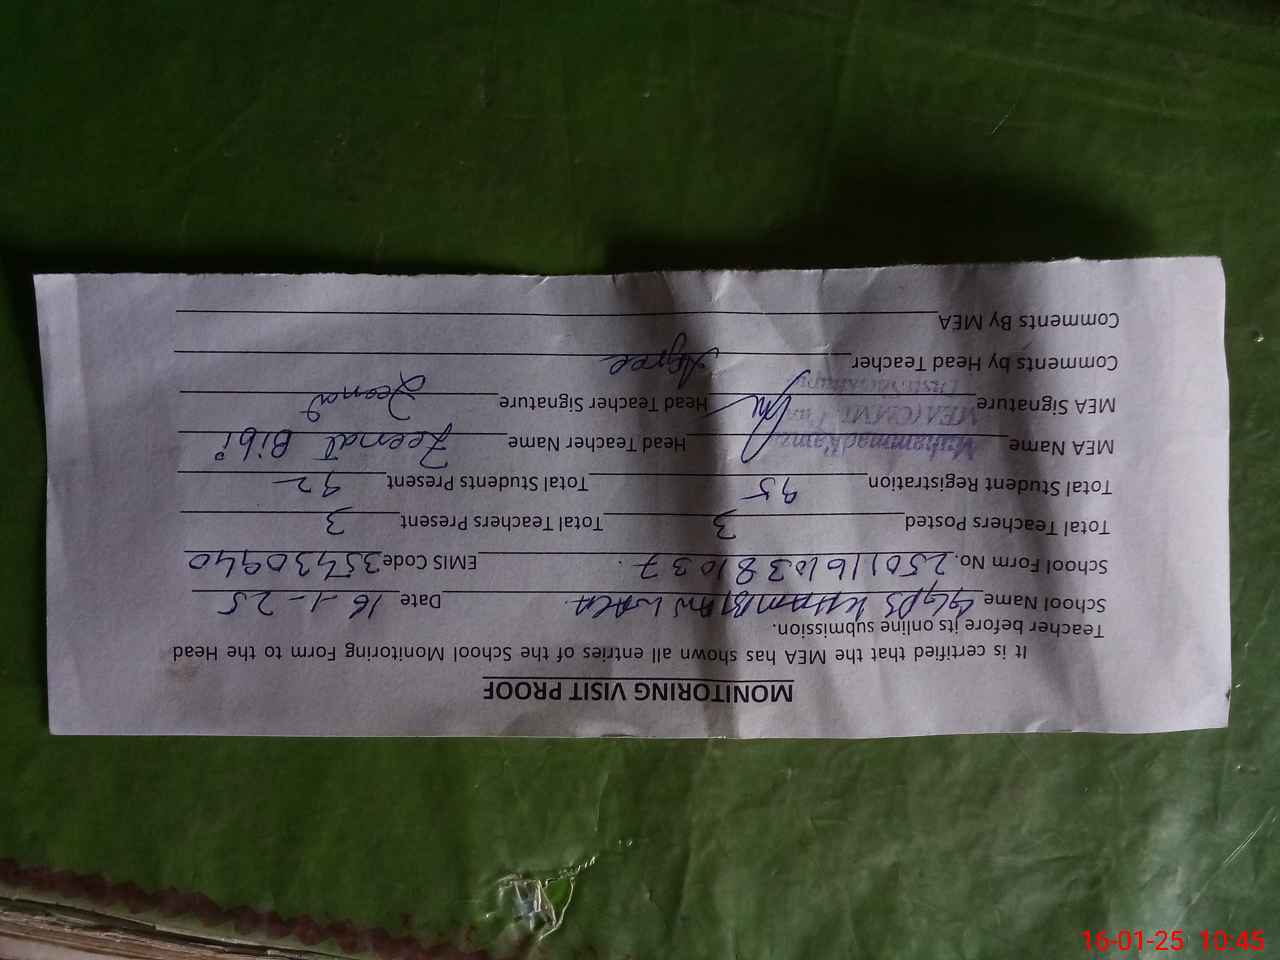 MONITORING VISIT PROOF
It is certified that the MEA has shown all entries of the School Monitoring Form to the Head
Teacher before its online submission.
School Name GGPS KHAMBIAN WALA Date 16-1-25
School Form No. 25011610381037 EMIS Code 35430940
Total Teachers Posted 3 Total Teachers Present 3
Total Student Registration 95 Total Students Present 92
MEA Name Muhammad Head Teacher Name Zeenat Bibi
MEA Signature Head Teacher Signature Zeenat
Comments by Head Teacher Agree
Comments By MEA
16-01-25 10:45